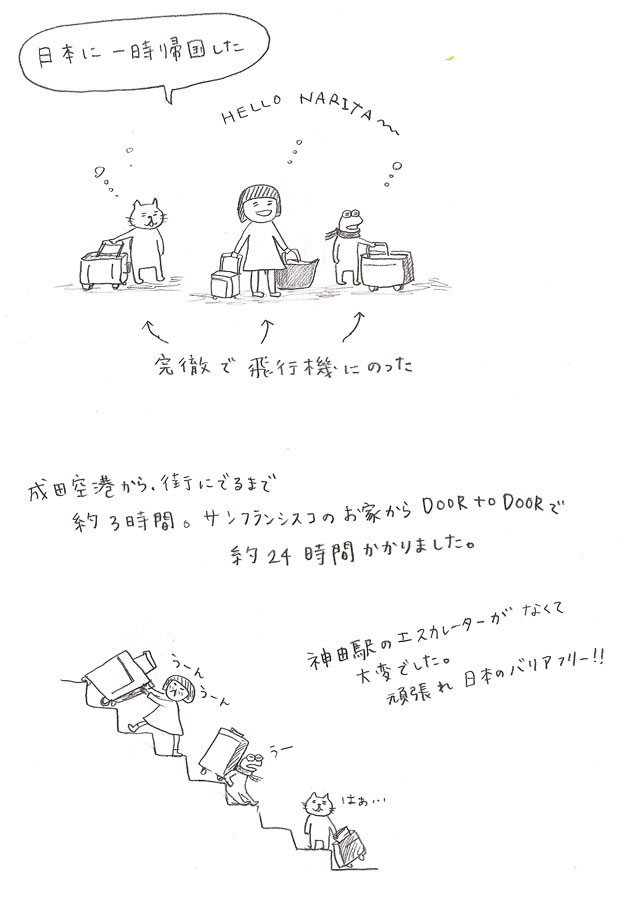 日本に一時帰国した
HELLO NARITA〜
完徹で飛行機にのった
成田空港から、街にでるまで
約3時間。サンフランシスコのお家からDOOR to DOORで
約24時間かかりました。
神田駅のエスカレーターがなくて
大変でした。
頑張れ日本のバリアフリー!!
うーん
うーん
うー
はぁ…